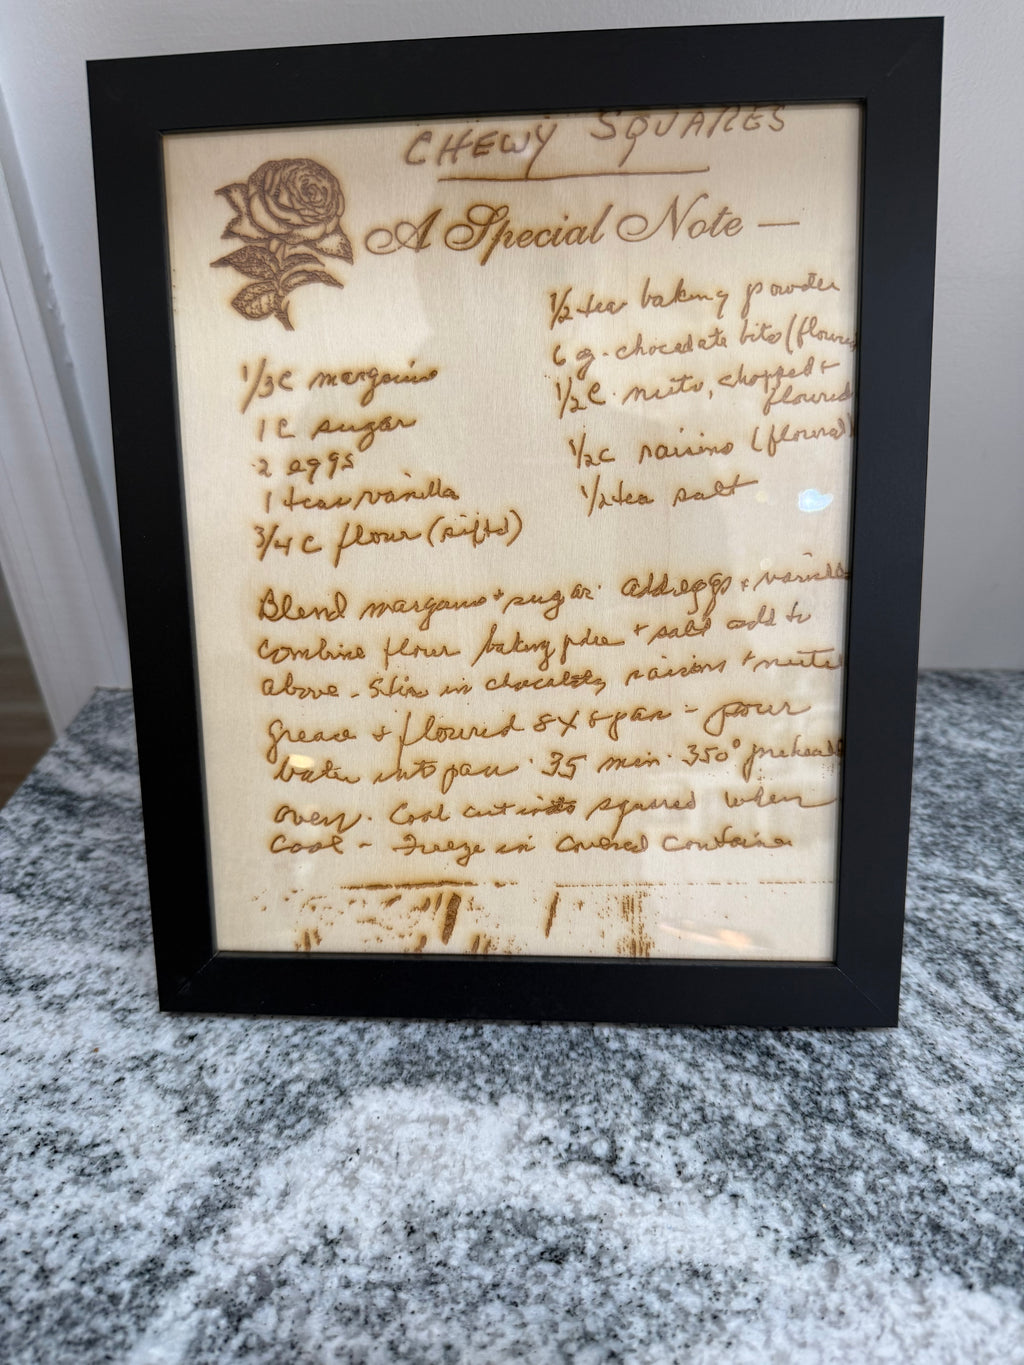 CHEWY SQUARES
A Special Note —
1/3 C margarine
1 C sugar
2 eggs
1 teas vanilla
3/4 C flour (sifted)
1/2 tea baking powder
6 oz. chocolate bits (floured
1/2 C. nuts, chopped +
floured
1/2 C raisins (floured)
1/2 tea salt
Blend margarine + sugar. add eggs + vanilla
combine flour baking + salt add to
above - Stir in raisins + nuts
Grease + floured 8 X 8 pan - pour
batter into pan. 35 min. 350° preheated
oven. Cool cut into squares when
cool - Freeze in covered container